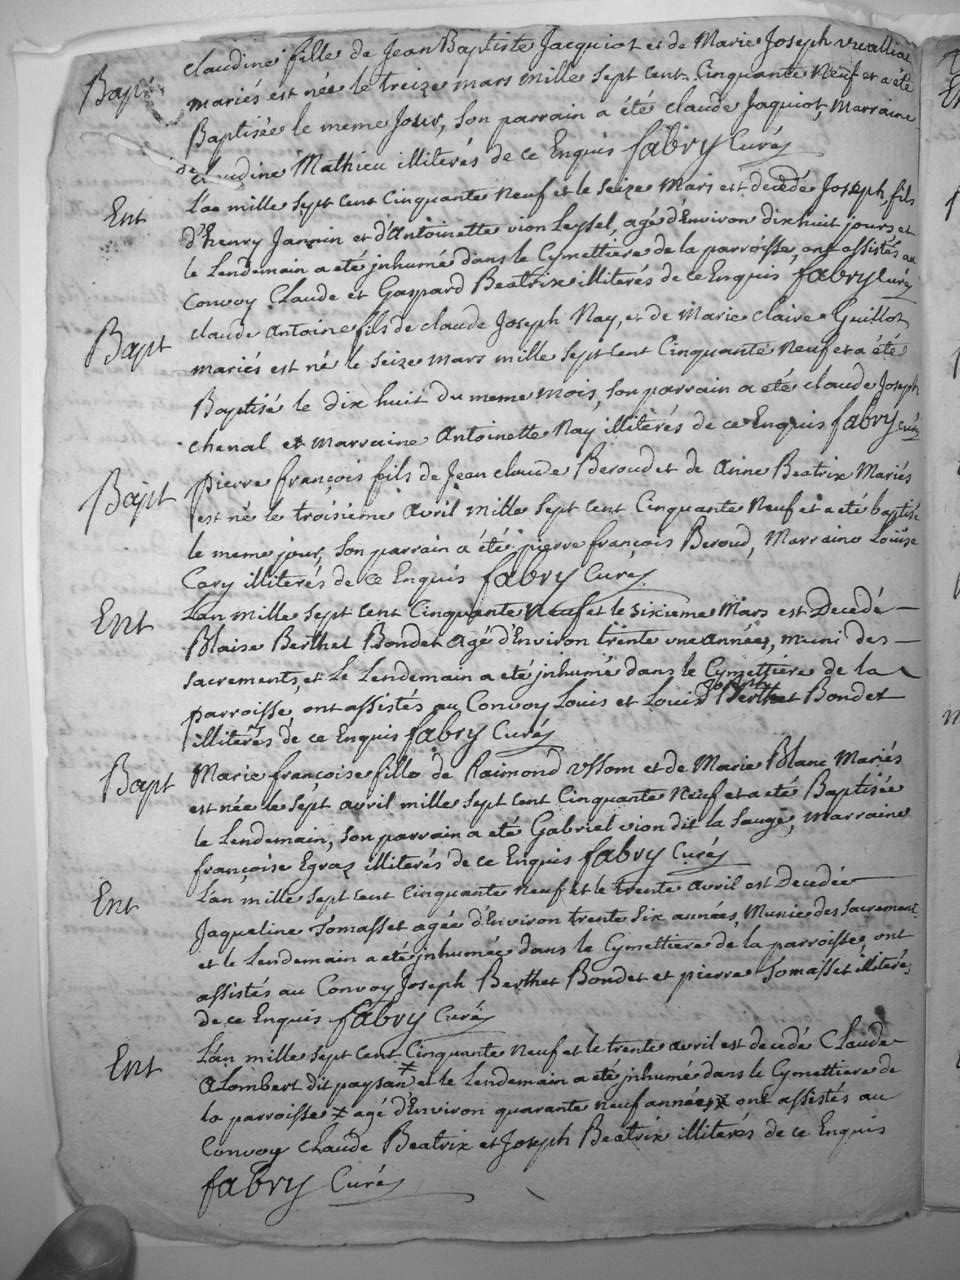 Bapt claudine fille de Jean Baptiste Jacquiot et de Marie Joseph
mariés est née le treize mars mille sept cent Cinquante Neuf et a été
Baptisée le meme Jour, son parrain a été claude Jaquiot, Marraine
claudine Mathieu illiterés de ce Enquis fabry Curé
Ent L'an mille sept cent Cinquante Neuf et le seize Mars est decedé Joseph fils
d'henry Jannin et d'Antoinette vion Leysel, agé d'Environ dix huit jours et
le Lendemain a eté jnhumé dans le Cymettiere de la parroisse, ont assistés au
Convoy Claude et Gaspard Beatrix illiterés de ce Enquis fabry Curé
Bapt claude Antoine fils de claude Joseph Nay, et de Marie claire Guillot
mariés est né le seize mars mille sept cent Cinquante Neuf et a été
Baptisé le dix huit du meme mois, son parrain a eté claude Joseph
chenal et marraine Antoinette Nay illiterés de ce Enquis fabry curé
Bapt pierre françois fils de Jean claude Beroud et de Anne Beatrix Mariés
est né le troisieme avril mille sept cent Cinquante Neuf et a eté baptisé
le meme jour, son parrain a été pierre françois Beroud, Marraine Louise
Cary illiterés de ce Enquis fabry Curé
Ent L'an mille sept cent Cinquante Neuf et le sixieme Mars est Decedé
Blaise Berthet Bondet agé d'Environ trente une années, muni des
sacrements, et Le Lendemain a eté jnhumé dans le Cymettiere de la
parroisse, ont assistés au Convoy Louis et Louis Berthet Bondet
illiterés de ce Enquis fabry Curé
Bapt Marie françoise fille de Raimond Ussom et de Marie Blanc Mariés
est née le sept avril mille sept cent Cinquante Neuf et a eté Baptisée
le Lendemain, son parrain a eté Gabriel vion dit la sauge, marraine
françoise Egraz illiterés de ce Enquis fabry Curé
Ent L'an mille sept cent Cinquante neuf et le trente avril est Decedée
Jaqueline Tomasset agée d'Environ trente six années, Munie des sacrement
et le Lendemain a eté jnhumée dans le Cymettiere de la parroisse, ont
assistés au Convoy Joseph Berthet Bondet et pierre Tomasset illiteré
de ce Enquis fabry Curé
Ent L'an mille sept cent Cinquante neuf et le trente avril est decedé Claude
alombert dit paysan et le Lendemain a eté jnhumé dans le Cymettiere de
la parroisse agé d'Environ quarante neuf années ont assistés au
Convoy Claude Beatrix et Joseph Beatrix illiterés de ce Enquis
fabry Curé